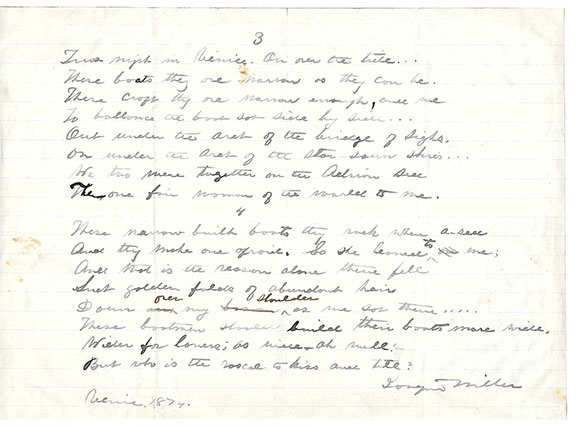 3
Twas night in Venice. On over the tide...
These boats they are narrow as they can be.
These craft they are narrow enough, and we
To ballance the boat sat side by side...
Out under the arch of the bridge of Sighs.
On under the arch of the star sown skies...
We two were together on the Adrian Sea
The one fair woman of the world to me.
4
These narrow built boats they rock when a-sea
And they make one afraid. So she leaned to me;
And that is the reason alone there fell
Such golden folds of abundant hair
Down over my shoulder as we sat there.....
These boatmen should build their boats more wide.
Wider for lovers; as wide - Ah well!
But who is the rascal to kiss and tell?
Joaquin Miller
Venice. 1874.